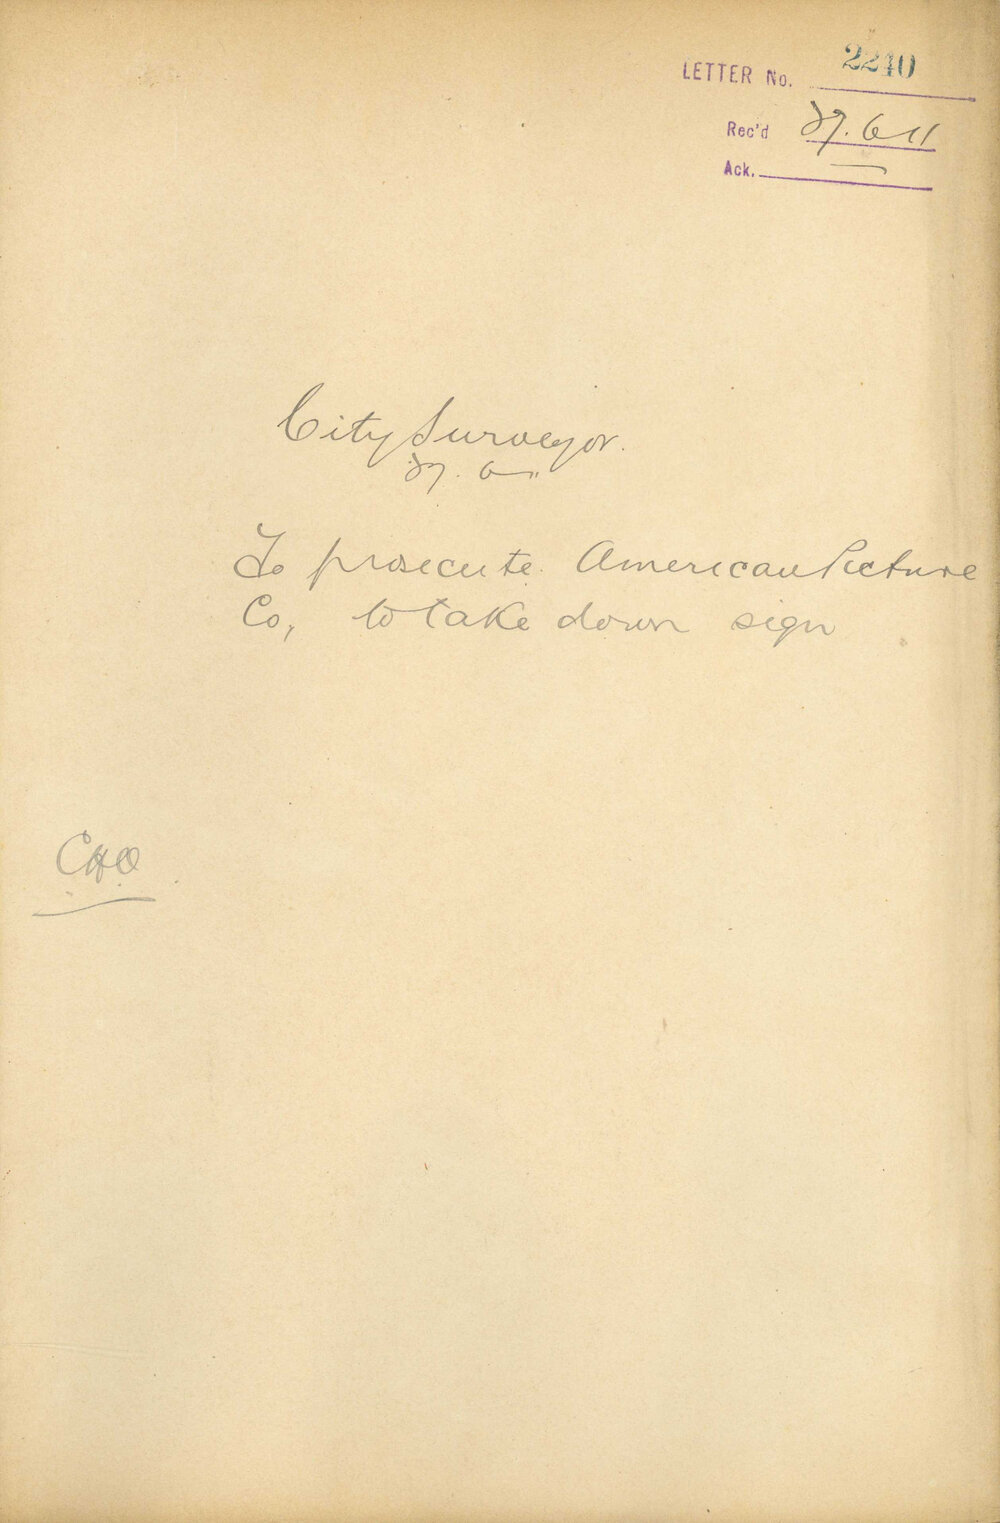 LETTER No. 2240
Rec'd 27.6 11
Ack. —
City Surveyor.
27.6 11
To prosecute American Picture
Co, to take down sign
CHO